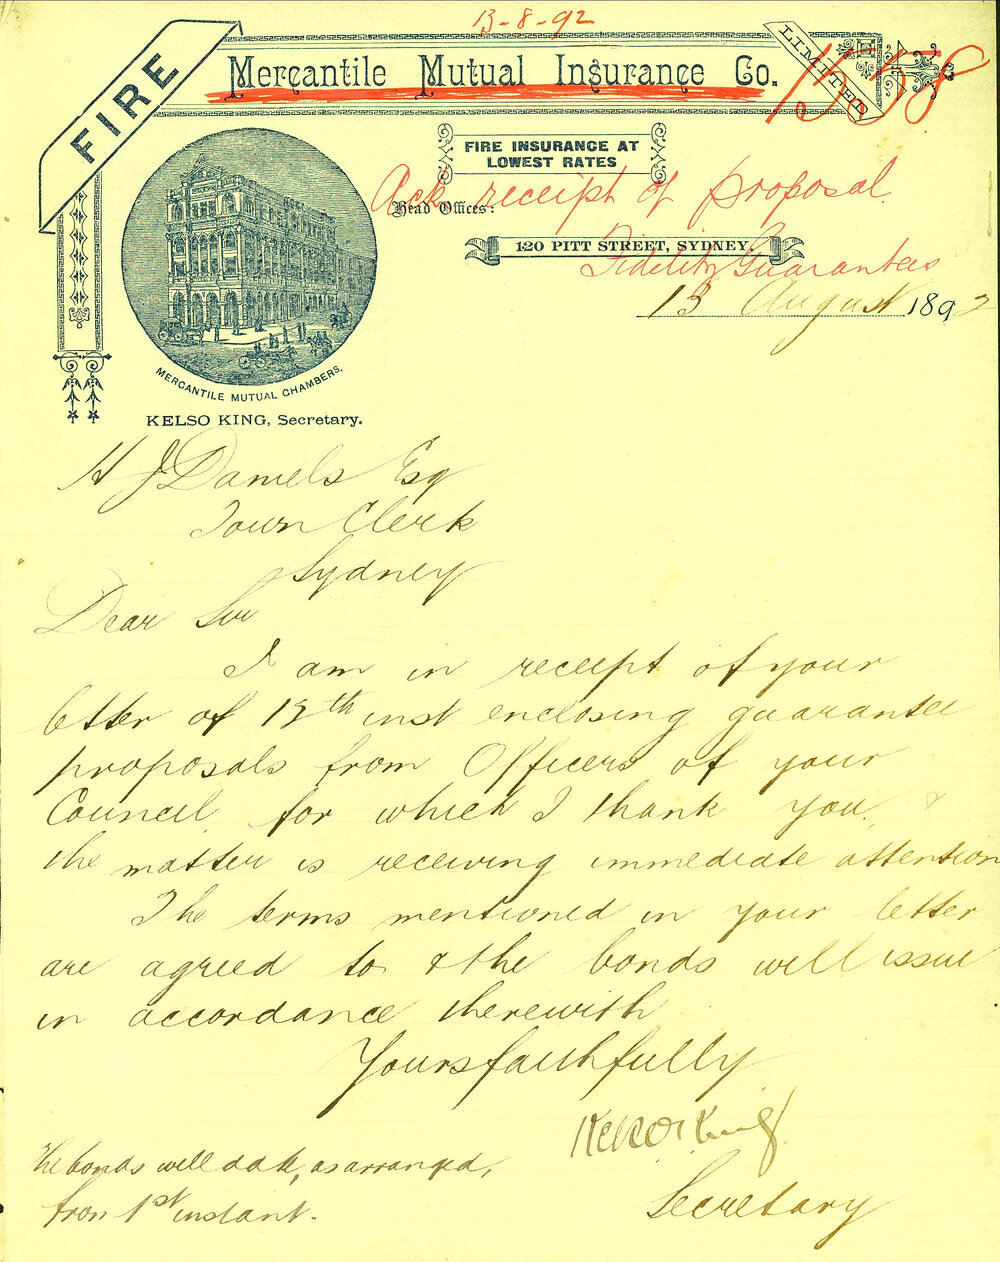 13-8-92
FIRE
Mercantile Mutual Insurance Co.
LIMITED
FIRE INSURANCE AT
LOWEST RATES
Ack receipt of proposal
Head Offices:
120 PITT STREET, SYDNEY.
Fidelity Guarantees
13 August 1892
MERCANTILE MUTUAL CHAMBERS.
KELSO KING, Secretary.
H J Daniels Esq
Town Clerk
Sydney
Dear Sir
I am in receipt of your
letter of 12th inst enclosing guarantee
proposals from Officers of your
Council for which I thank you, &
the matter is receiving immediate attention
The terms mentioned in your letter
are agreed to & the bonds will issue
in accordance therewith
Yours faithfully
Kelso King
Secretary
The bonds will date, as arranged,
from 1st instant.